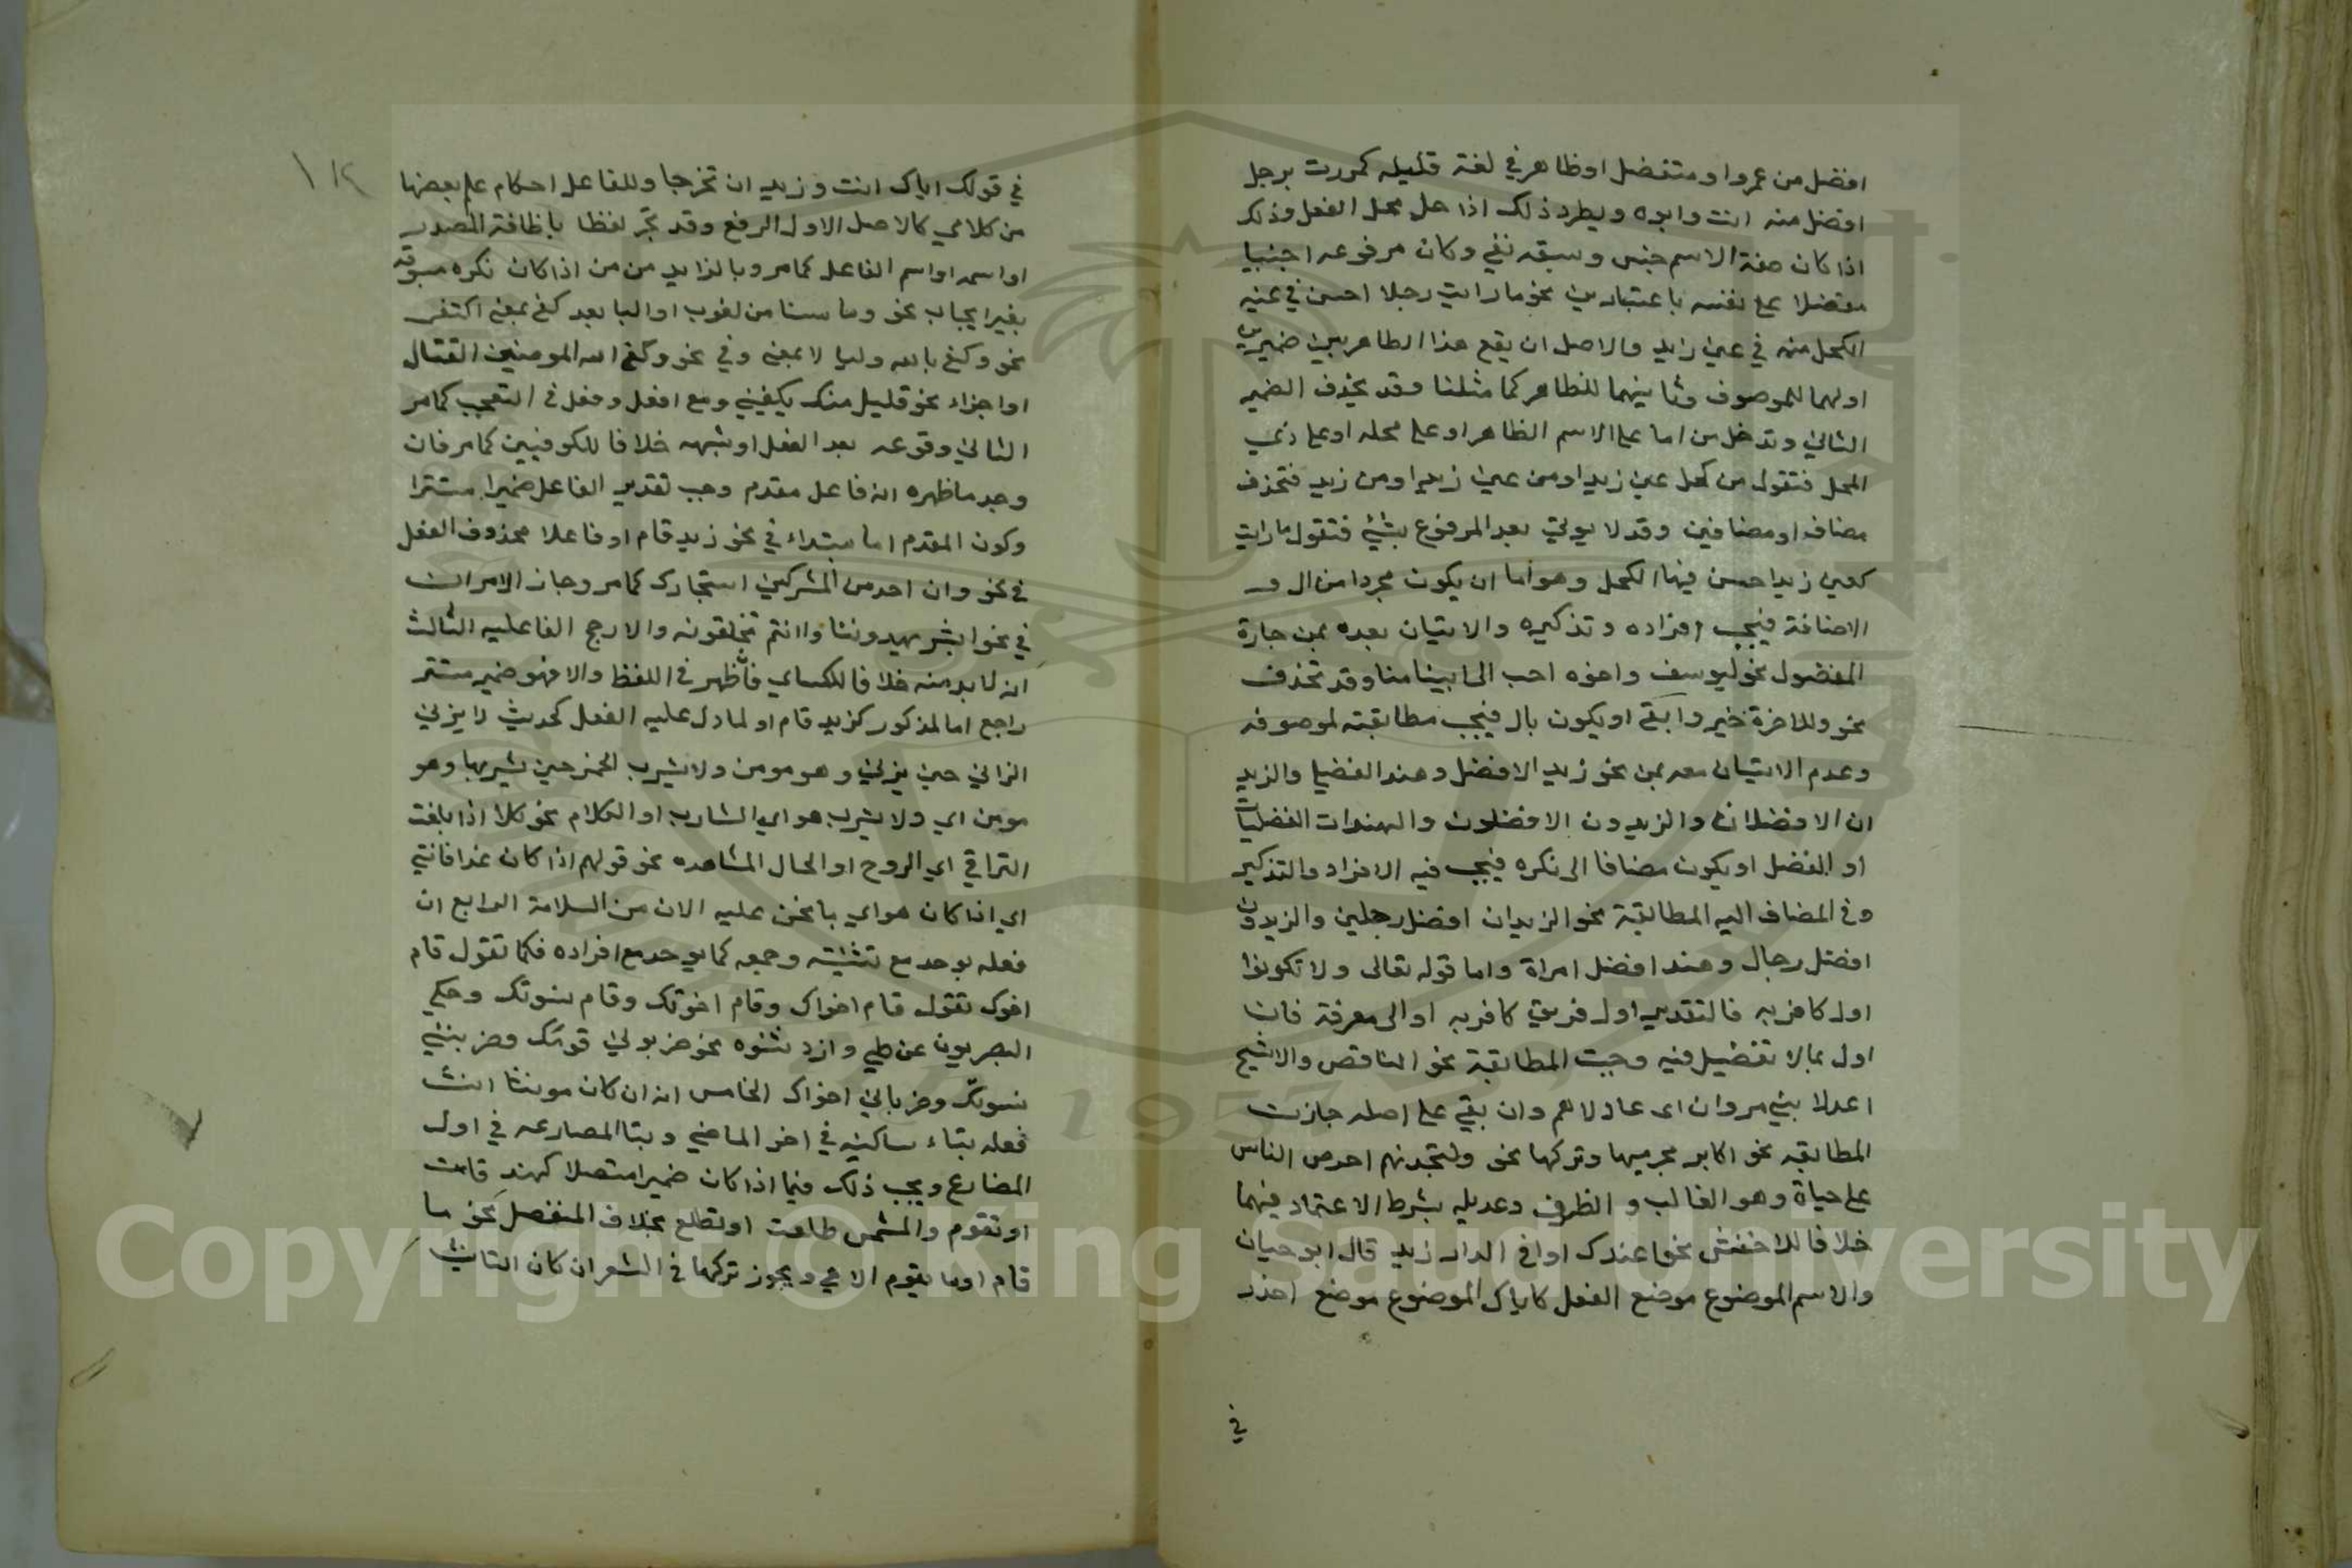 افضل من عمرو او متفضل او ظاهر في لغة قليله كمررت برجل
افضل منه انت وابوه ويطرد ذلك اذا حل محل الفعل وذلك
اذا كان صفة الاسم جنس وسبقه نفي وكان مرفوعه اجنبيا
مفضلا على نفسه باعتبارين نحو ما رايت رجلا احسن في عينه
الكحل منه في عين زايد والاصل ان يقع هذا الظاهر بين ضميرين
اولهما للموصوف وثانيهما للظاهر كما مثلنا وقد يحذف الضمير
الثاني وتدخل من اما على الاسم الظاهر او على محله او على ذي
المحل فتقول من كحل عين زيد او من عين زيد او من زيد فتحذف
مضاف او مضافين وقد لا يوتي بعد المرفوع بشي فتقول ما رايت
كعين زيد احسن فيها الكحل وهو اما ان يكون مجردا من ال و
الاضافة فيجب افراده وتذكيره والاتيان بعده بمن جارة
المفضول نحو ليوسف واخوه احب الى ابينا منا وقد تحذف
نحو وللاخرة خير وابقى او يكون بال فيجب مطابقته لموصوفه
وعدم الاتيان معه بمن نحو زيد الافضل وهند الفضلى والزيد
ان الافضلان والزيدون الافضلون والهندات الفضليات
او الفضل او يكون مضافا الى نكره فيجب فيه الافراد والتذكير
وفي المضاف اليه المطابقة نحو الزيدان افضل رجلين والزيدون
افضل رجال وهند افضل امراة واما قوله تعالى ولا تكونوا
اول كافر به فالتقدير اول فريق كافر به او الى معرفة فان
اول بمالا تفضيل فيه وجبت المطابقة نحو الناقص والاشج
اعدلا بني مروان اى عادلاهم وان بقي على اصله جازت
المطابقه نحو اكابر مجرميها وتركها نحو ولتجدنهم احرص الناس
على حياة وهو الغالب و الظرف وعديله بشرط الاعتماد فيهما
خلافا للاخفش نحو اعندك او افي الدار زيد قال ابو حيان
والاسم الموضوع موضع الفعل كاياك الموضوع موضع احذر
في
١١٢
في قولك اياك انت وزيد ان تخرجا وللفاعل احكام علم بعضها
من كلامي كالاصل الاول الرفع وقد يجر لفظا باظافة المصدر
او اسمه او اسم الفاعل كما مر وبالزايد من من اذا كان نكره مسبوقه
بغير ايجاب نحو وما مسنا من لغوب او البا بعد كفى بمعنى اكتفى
نحو وكفى بالله وليا لا بمعنى وفي نحو وكفى الله المومنين القتال
او اجزاء نحو قليل منك يكفيني ومع افعل وفعل في التعجب كما مر
الثاني وقوعه بعد الفعل او شبهه خلافا للكوفيين كما مر فان
وجد ما ظهره انه فاعل مقدم وجب تقدير الفاعل ضميرا مستترا
وكون المقدم اما مبتداء في نحو زيد قام او فاعلا محذوف الفعل
في نحو وان احد من المشركين استجارك كما مر وجاز الامران
في نحو ابشر يهدوننا و اانتم تخلقونه والارجح الفاعليه الثالث
انه لا بد منه خلافا للكساي فان ظهر في اللفظ والا فهو ضمير مستتر
راجع اما لمذكور كزيد قام او لما دل عليه الفعل كحديث لا يزني
الزاني حين يزني وهو مومن ولا يشرب الخمر حين يشربها وهو
مومن اي ولا يشرب هو اي الشارب او الكلام نحو كلا اذا بلغت
التراقي اي الروح او الحال المشاهده نحو قولهم اذا كان غدا فاتني
اي اذا كان هو اي ما نحن عليه الان من السلامة الرابع ان
فعله يوحد مع تثنيته وجمعه كما يوحد مع افراده فكما تقول قام
اخوك تقول قام اخواك وقام اخوتك وقام نسوتك وحكي
البصريون عن طي وازد شنوه نحو ضربوني قومك وضربنني
نسوتك وضرباني اخواك الخامس انه ان كان مونثا انث
فعله بتاء ساكنه في اخر الماضي وبتا المضارعه في اول
المضارع ويجب ذلك فيما اذا كان ضميرا متصلا كهند قامت
او تقوم والشمس طلعت او تطلع بخلاف المنفصل نحو ما
قام او ما يقوم الا هي ويجوز تركها في الشعر ان كان التانيث
Copyright © King Saud University
1957